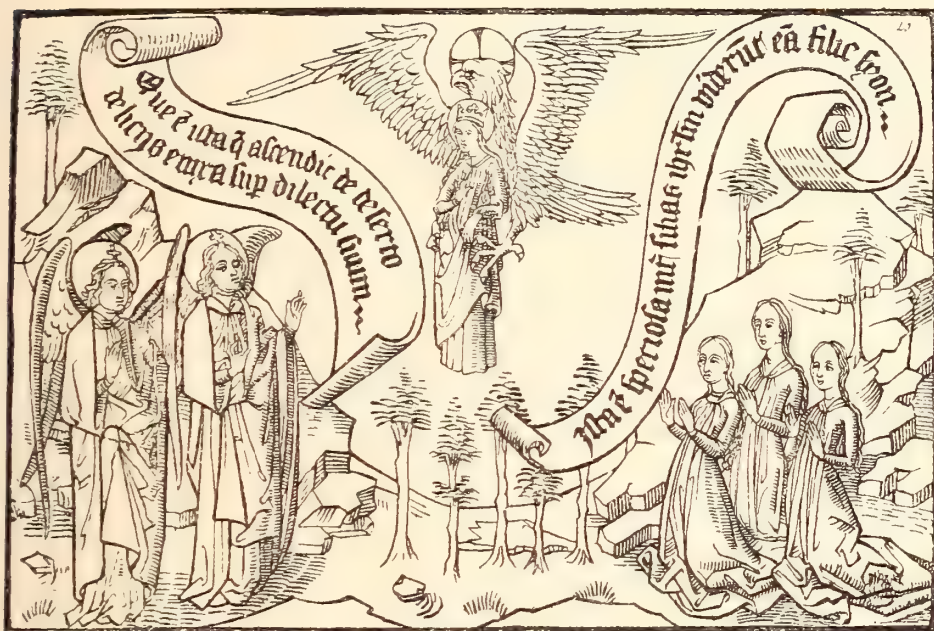 Que ē ista q̄ ascendit de deserto
delicijs enixa sup dilectū suum
Ista ē speciosa int̄ filias ihrlm viderūt eā filie syon